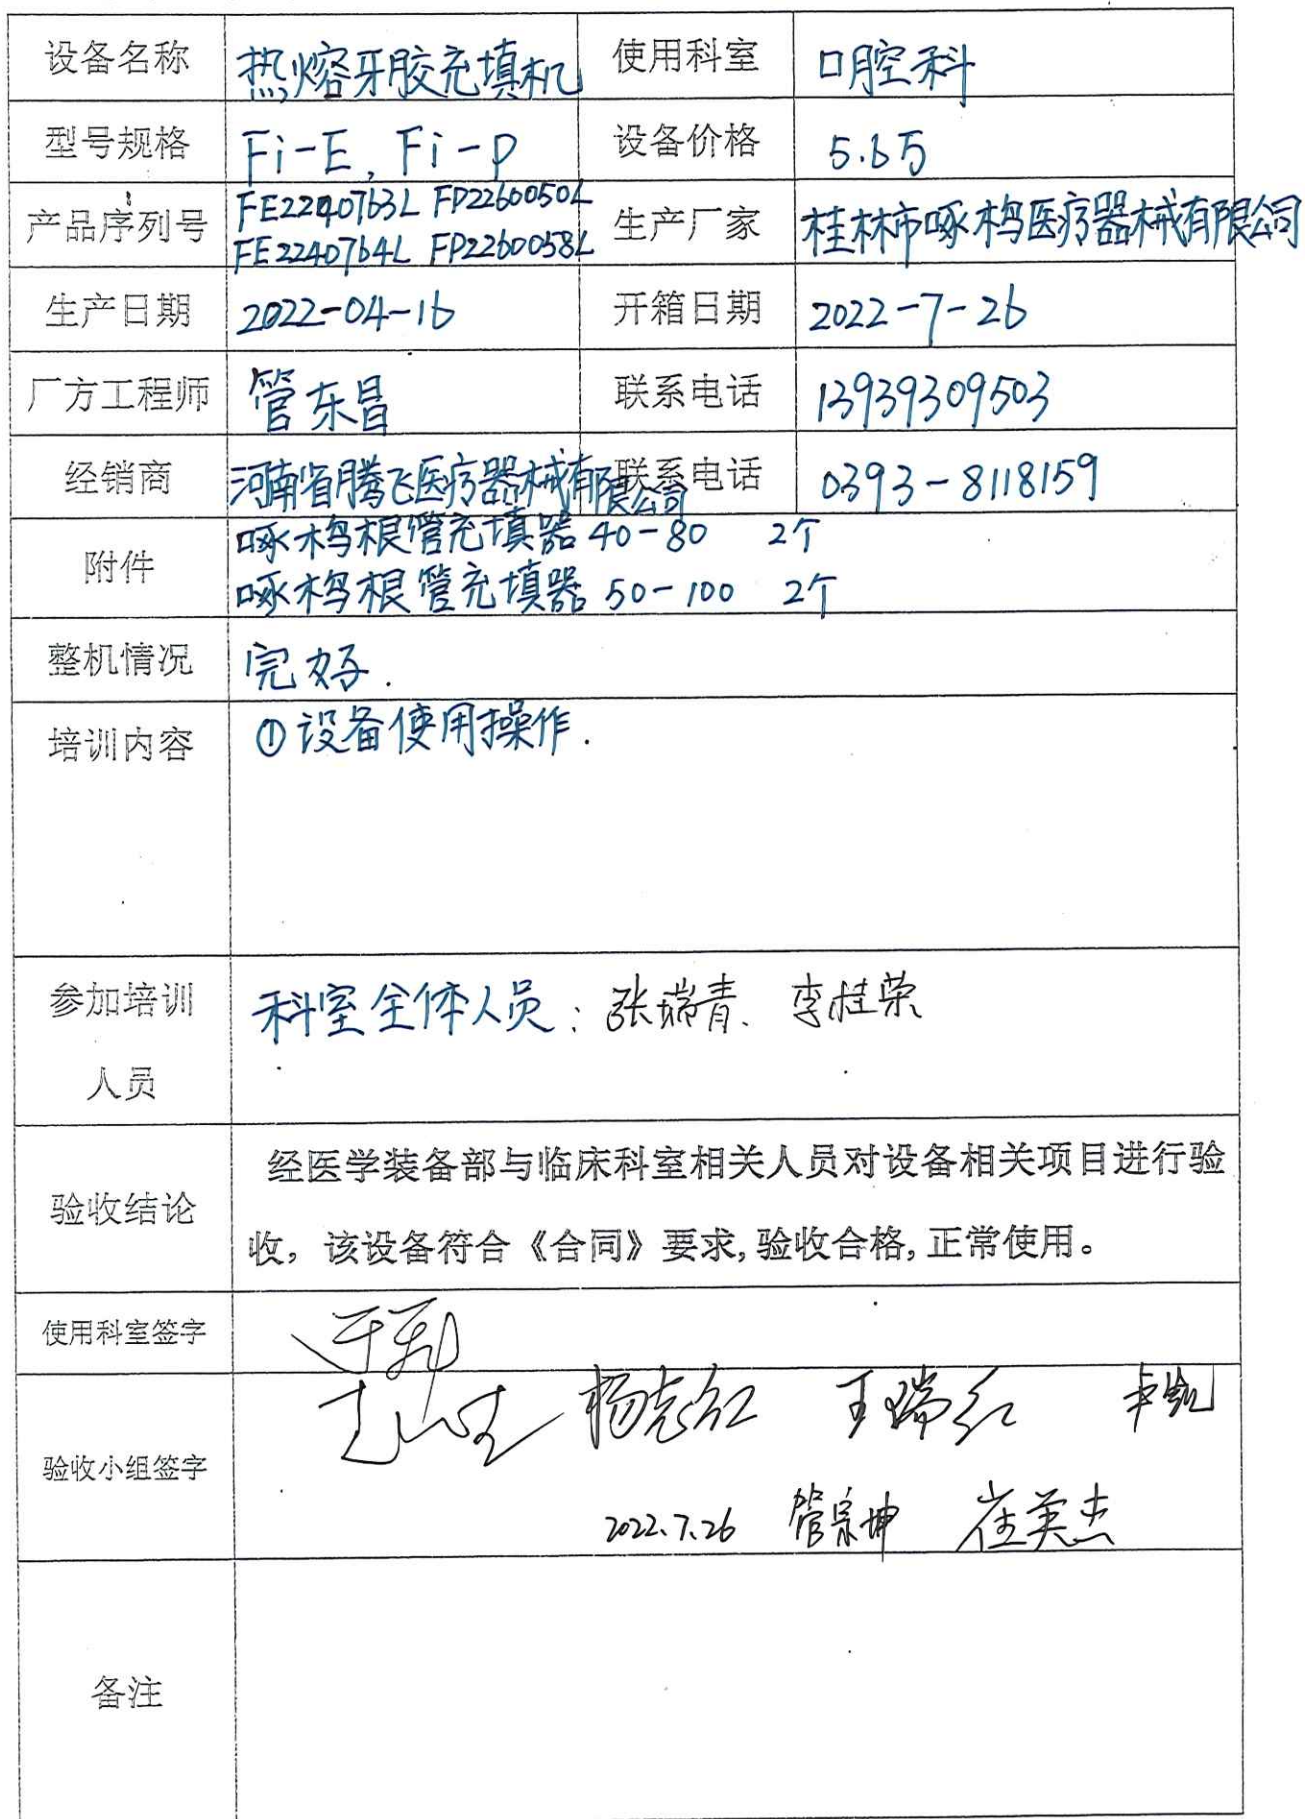 设备名称 热熔牙胶充填机 使用科室 口腔科
型号规格 Fi-E, Fi-P 设备价格 5.6万
产品序列号 FE2240763L FP2260050L 生产厂家 桂林市啄木鸟医疗器械有限公司
FE2240764L FP2260058L
生产日期 2022-04-16 开箱日期 2022-7-26
厂方工程师 管东昌 联系电话 13939309503
经销商 河南省腾飞医疗器械有限公司 联系电话 0393-8118159
附件 啄木鸟根管充填器 40-80 2个
啄木鸟根管充填器 50-100 2个
整机情况 完好.
培训内容 ①设备使用操作.
参加培训 科室全体人员: 张瑞青、李桂荣
人员
验收结论 经医学装备部与临床科室相关人员对设备相关项目进行验
收，该设备符合《合同》要求,验收合格,正常使用。
使用科室签字
验收小组签字 杨克红 王瑞红
2022.7.26 管宗坤 崔英杰
备注